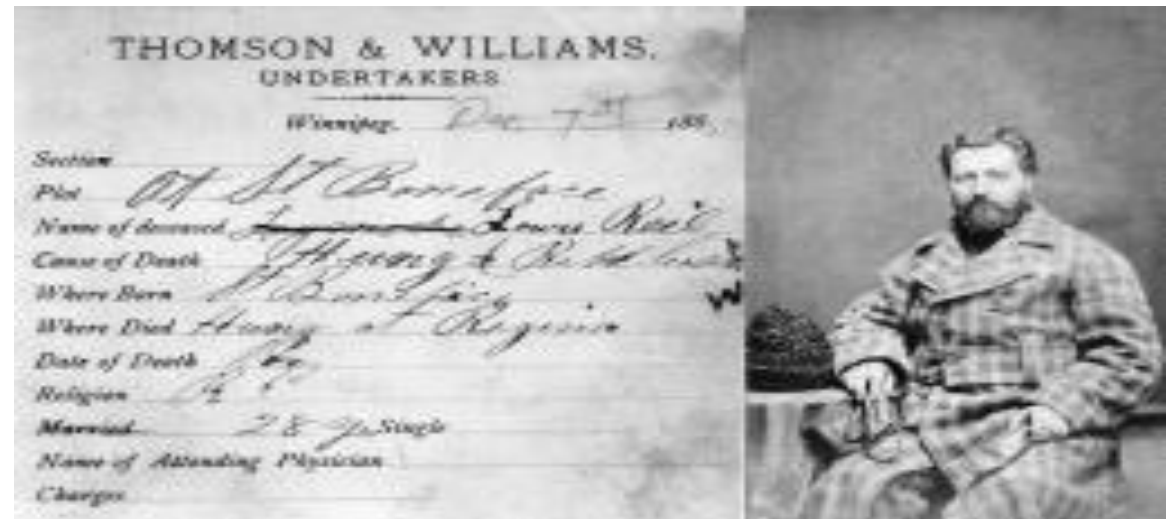 THOMSON & WILLIAMS.
UNDERTAKERS
Winnipeg, Dec 7th 188
Section
Plot At St Boniface
Name of deceased Louis Riel
Cause of Death Hung &
Where Born St Boniface
Where Died Hung at Regina
Date of Death
Religion R C
Married Single
Name of Attending Physician
Charges